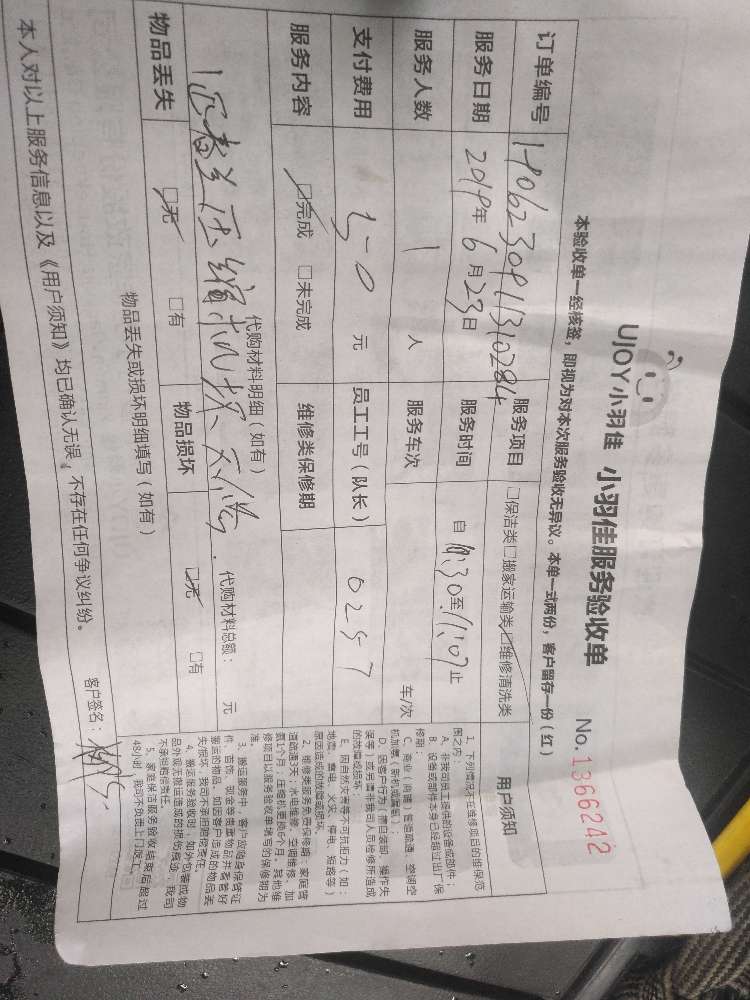 UJOY小羽佳 小羽佳服务验收单 No.1366242
本验收单一经核签，即视为对本次服务验收无异议。本单一式两份，客户留存一份（红）
订单编号 服务项目 □保洁类□搬家运输类□维修清洗类
服务日期 2019年6月23日 服务时间 自 至 11:07止
服务人数 1 人 服务车次 车/次
支付费用 50 元 员工工号（队长） 0257
服务内容 □完成 □未完成 维修类保修期
代购材料明细（如有）
代购材料总额： 元
物品丢失 □无 □有 物品损坏 □无 □有
物品丢失或损坏明细填写（如有）
本人对以上服务信息以及《用户须知》均已确认无误，不存在任何争议纠纷。
客户签名：
用户须知
1、下列情况不在维修项目的维保范
围之内：
A、非我司员工提供的设备或部件；
B、设备或部件本身已经超过出厂保
修期；
D、因客户行为（擅自装卸、操作失
误等）或另请非我司人员检修所造成
的故障或损坏；
E、因自然灾害等不可抗拒力（如：
地震、雷电、火灾、停电、短路等）
原因造成的故障或损坏。
2、维修类服务免费保修期：家庭管
道疏通3天；水电维修、空调维修、加
氨1个月；压缩机更换6个月。其他维
修项目以服务验收单填写的保修期为
准。
3、搬运服务中，客户应随身保管证
件、首饰、现金等贵重物品并看管好
搬运的物品。如因客户造成的物品丢
失损坏，我司不承担赔偿责任。
4、搬运服务验收时，如外包装或物
品外观无搬运造成的损伤痕迹，我司
不承担赔偿责任。
5、家庭保洁服务验收结束后超过
48小时，我司不负责上门返工。